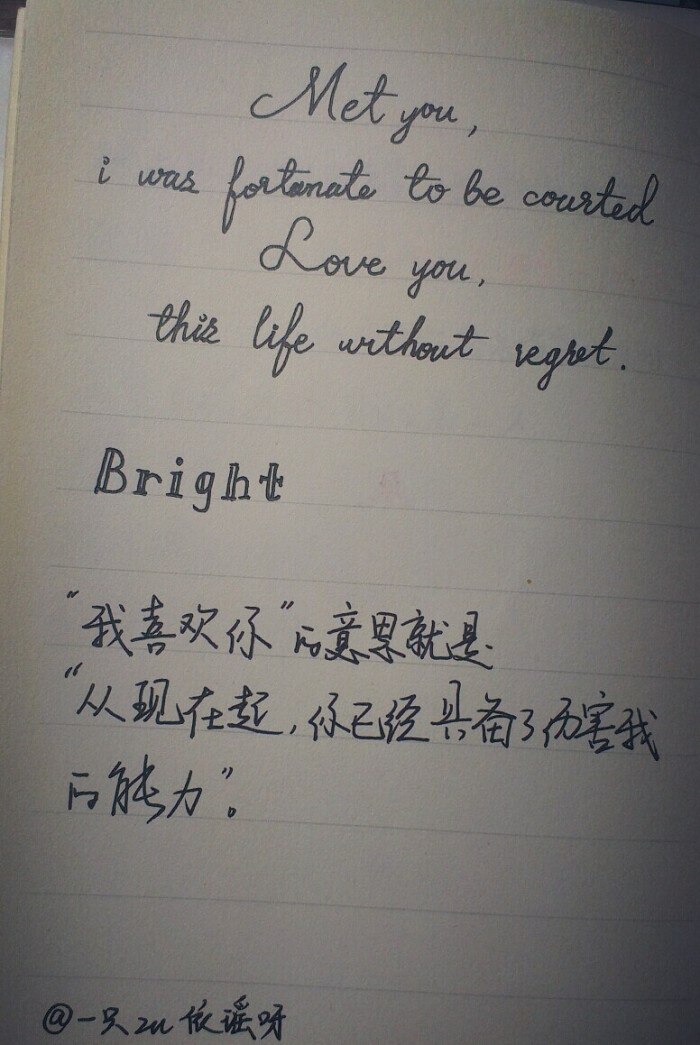 Met you,
i was fortunate to be courted
Love you,
this life without regret.
Bright
“我喜欢你”的意思就是
“从现在起,你已经具备了伤害我
的能力”。
@一只zu依谣呀